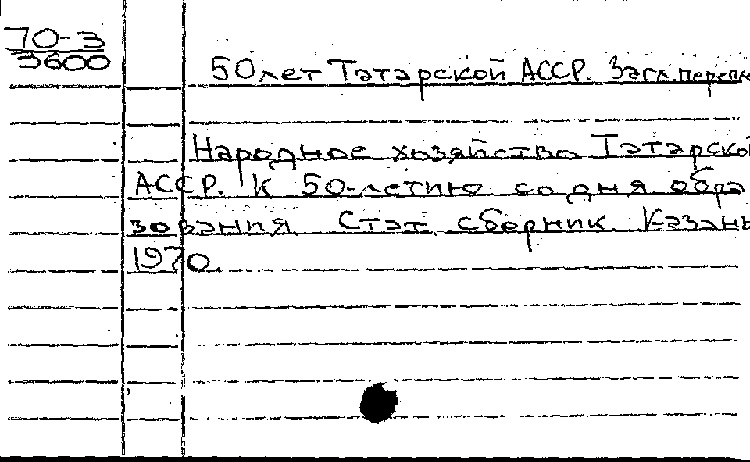 70-3
3600
50 лет Татарской АССР. Загл. перепл
Народное хозяйство Татарской
АССР. К 50-летию со дня обра
зования. Стат. сборник. Казань
1970.